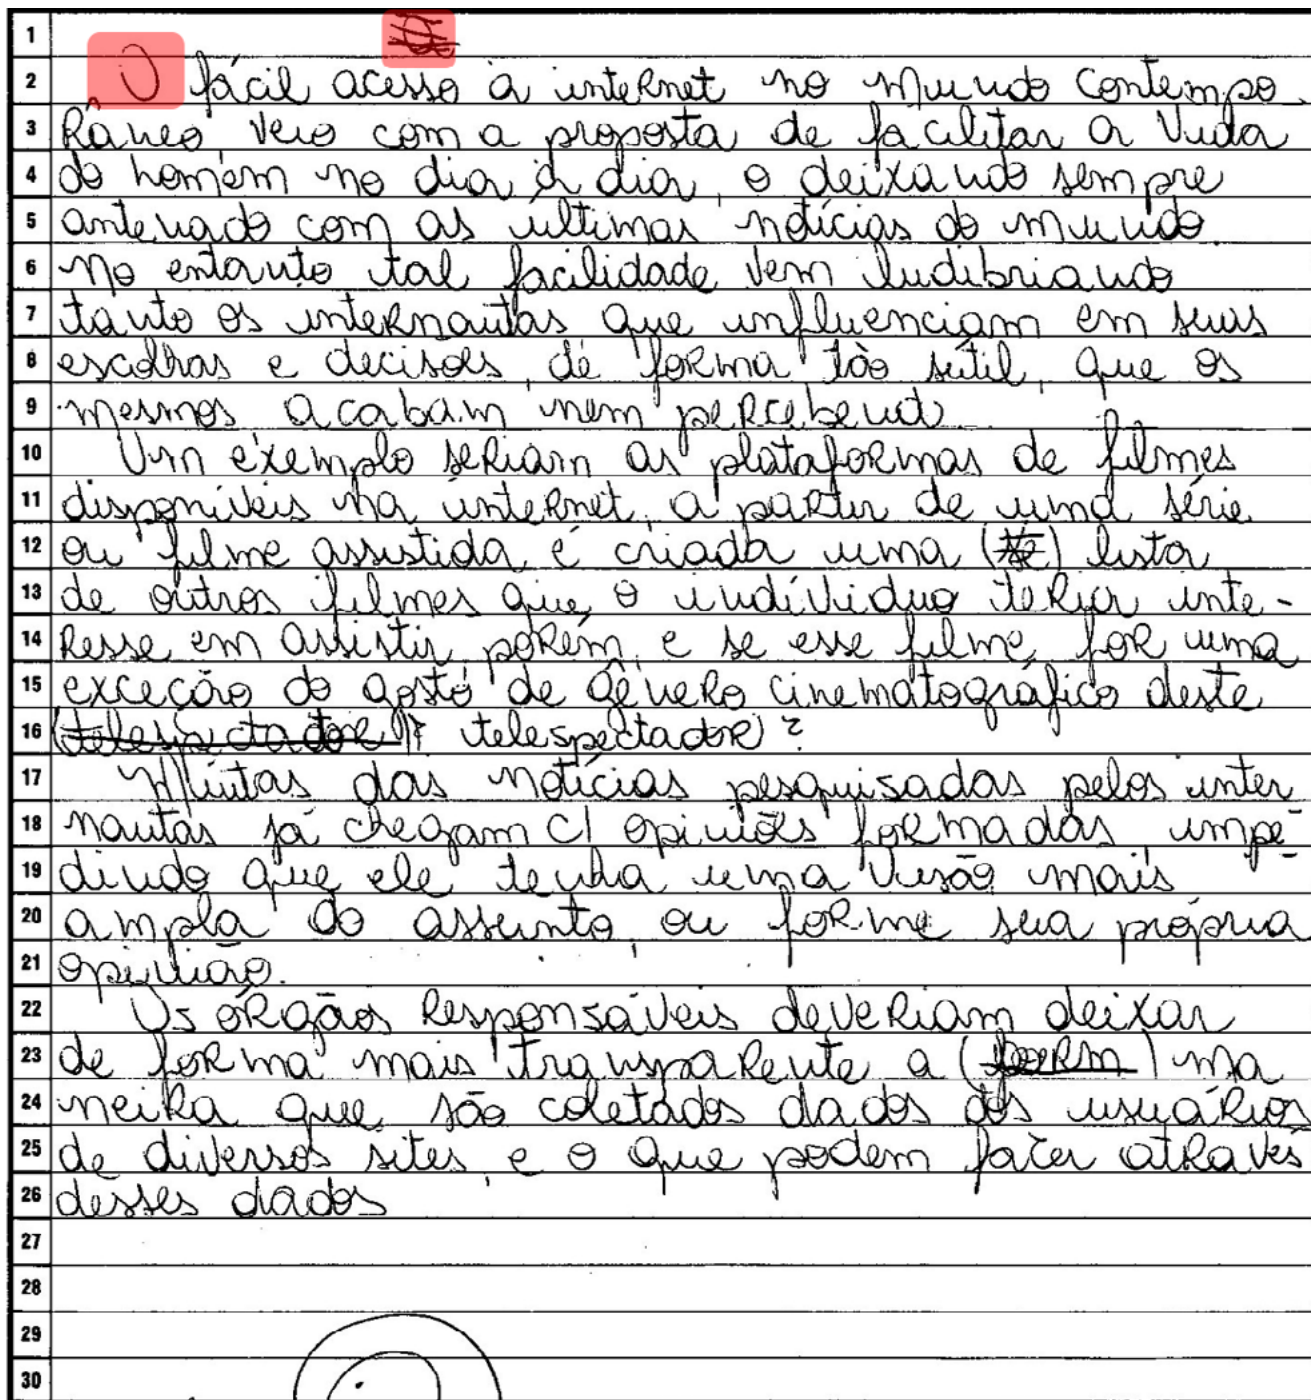 1
2 O fácil acesso a internet no mundo contempo
3 râneo veio com a proposta de facilitar a vida
4 do homem no dia à dia, o deixando sempre
5 antenado com as ultimas notícias do mundo
6 no entanto tal facilidade vem ludibriando
7 tanto os internautas que influenciam em suas
8 escolhas e decisões, de forma tão sútil, que os
9 mesmos acabam nem percebend
10 Um exemplo seriam as plataformas de filmes
11 disponíveis na internet, a partir de uma série
12 ou filme assistida, é criada uma lista
13 de outros filmes que o indíviduo teria inte-
14 resse em assistir, porém, e se esse filme, for uma
15 exceção do gosto de gênero cinematográfico deste
16 (telespectador) telespectador?
17 Muitas das notícias pesquisadas pelos inter
18 nautas já chegam c/ opiniões formadas impe-
19 dindo que ele tenha uma visão mais
20 ampla do assunto, ou forme sua própria
21 opinião.
22 Os órgãos responsáveis deveriam deixar
23 de forma mais transparente a (form) ma
24 neira que são coletados dados dos usuários
25 de diversos sites, e o que podem fazer através
26 desses dados
27
28
29
30